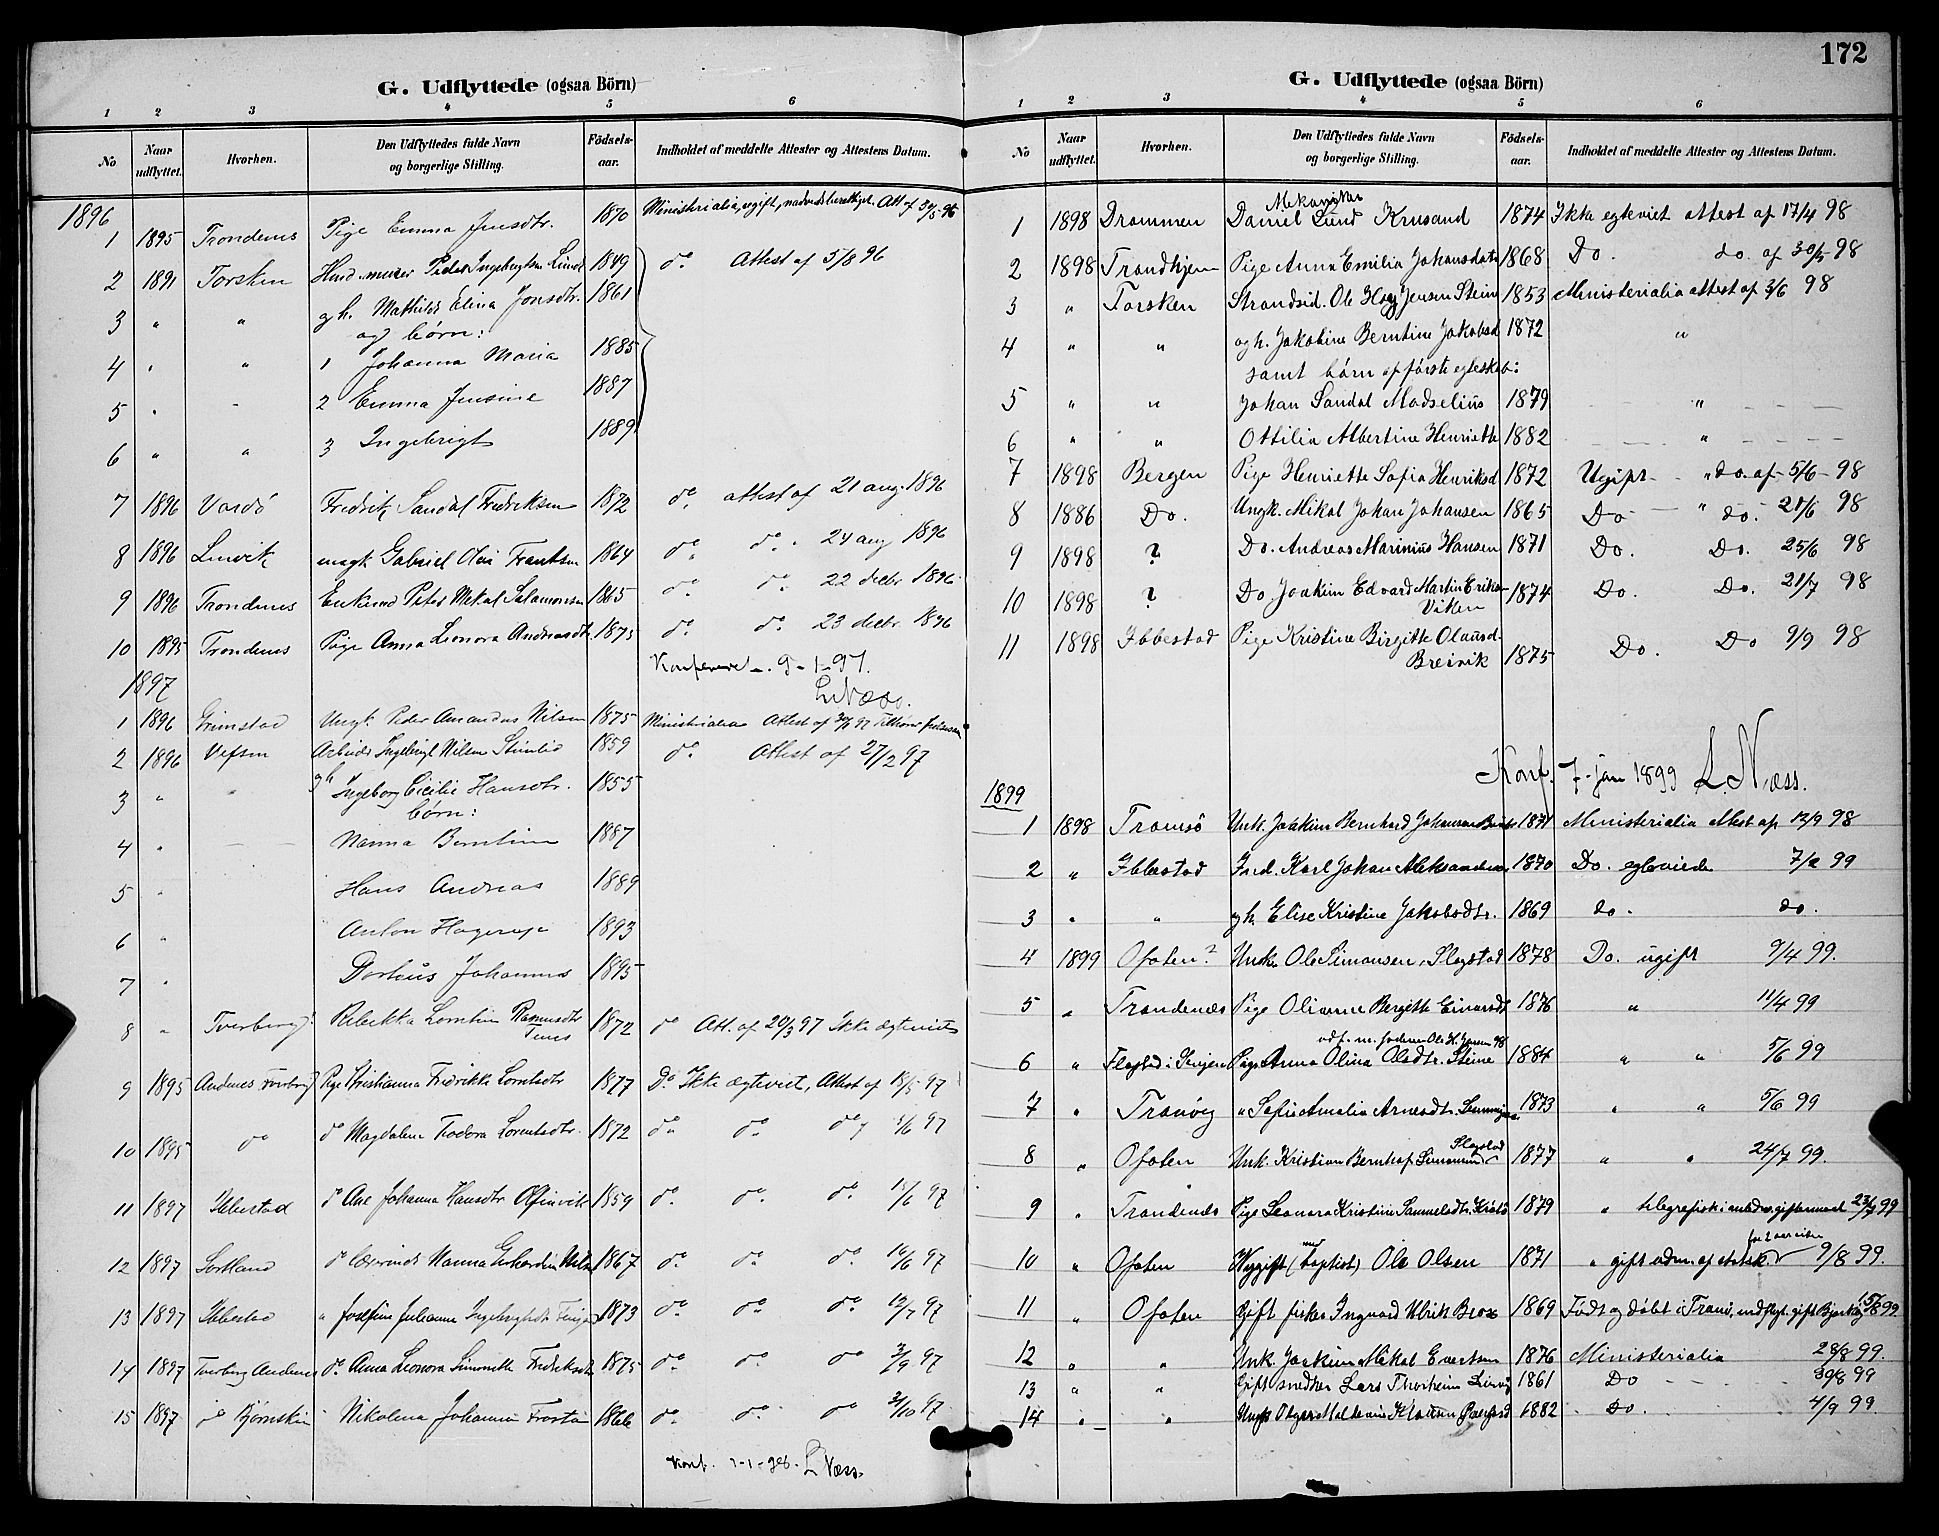 G. Udflyttede (ogsaa Börn)
1 2 3 4 5 6
No Naar udflyttet. Hvorhen. Den Udflyttedes fulde Navn og borgerlige Stilling. Födsels-aar. Indholdet af meddelte Attester og Attestens Datum.
1896
1 1895 Trondenes Pige Emma Jensdtr. 1870 Ministerialia, ugift, Att. af
2 1891 Torsken Peder Lund 1849 do Attest af 5/8 96
3 " " gh. Mathilde Elina Jonsdtr. 1861
og børn:
4 " " 1 Johanna Maria 1885
5 " " 2 Emma Jensine 1887
6 " " 3 Ingebrigt 1889
7 1896 Vardö Fredrik Sandal Fredriksen 1872 do attest af 21 aug. 1896
8 1896 Lenvik ungk Gabriel Olai Frantsen 1864 do do 24 aug 1896
9 1896 Trondenes Enkemd Peter Mekal Salamonsen 1865 do do 22 decbr 1896
10 1895 Trondenes Pige Anna Leonora Andreasdtr. 1875 do do 23 decbr 1896
Konfereret 9-1-97.
L. Næss.
1897
1 1896 Grimstad Ungk Peder Amandus Nilsen 1875 Ministerialia Attest af
2 1896 Vefsen Arbeider Ingebrigt Nilsen 1859 do Attest af 27/2 97
3 " " gh Ingeborg Cicilie Hansdtr. 1855
børn:
4 " Nanna Berntine 1887
5 " Hans Andreas 1889
6 " Anton Hagerup 1893
7 " Dorteus Johannes 1895
8 " Tverberg Rebekka Lorntine Rasmusdtr 1872 do Att. af 20/3 97 Ikke ægteviet
9 1895 Andenes Tverberg Pige Kristianna Fredrikke Lorntsdtr 1877 Do Ikke ægteviet, Attest af 18/5 97
10 1895 do do Magdalene Teodora Lorentsdtr. 1872 do do do 1/6 97
11 1897 Ibbestad do Ane Johanna Hansdtr 1859 do do do 15/6 97
12 1897 Sortland do Nanna 1867 do do do 16/6 97
13 1897 Ibbestad " Josefine Julianne 1873 do do do 12/7 97
14 1897 Tverberg Andenes do Anna Leonora Fredriksdtr 1875 do do do 3/9 97
15 1897 do Bjørnskin Nikolena Johanna 1866 do do do 2/10 97
Konf. 1-1-98. L Næss.
172
G. Udflyttede (ogsaa Börn)
1 2 3 4 5 6
No Naar udflyttet. Hvorhen. Den Udflyttedes fulde Navn og borgerlige Stilling. Födsels-aar. Indholdet af meddelte Attester og Attestens Datum.
Mekaniker
1 1898 Drammen Daniel Lund Krusand 1874 Ikke egteviet attest af 17/4 98
2 1898 Trondhjem Pige Anna Emilia Johansdatr 1868 Do. do. af 30/5 98
3 " Torsken Strandsid. Ole Hag Jensen Stein 1853 Ministerialia attest af 3/6 98
4 " " og h. Jakobine Berntine Jakobsd 1872 "
samt börn af förste egteskab:
5 " " Johan Sandal Madselius 1879 "
6 " " Ottilia Albertine Henriette 1882 "
7 1898 Bergen Pige Henriette Sofia Henriksd 1872 Ugift " do. af 5/6 98
8 1886 Do. Ungk. Mikal Johan Johansen 1865 Do " do. 21/6 98
9 1898 ? Do. Andreas Marinius Hansen 1871 Do. Do. 25/6 98
10 1898 ? Do Joakim Edvard Martin Eriks- 1874 Do. Do. 21/7 98
Viken
11 1898 Ibbestad Pige Kristine Birgitte Olausd-
Breivik 1875 Do. Do 9/9 98
Konf. 7. jan 1899 L. Næss.
1899
1 1898 Tromsö Unk. Joakim Bernhard Johansen 1871 Ministerialia Attest af 12/9 98
2 " Ibbestad Ind. Karl Johan Aleksandersen 1870 Do. egteviede 7/2 99
3 " " gh. Elise Kristine Jakobsdtr. 1869 do. do.
4 1899 Ofoten? Unk. Ole Simonsen, Slagstad 1878 Do. ugift 9/4 99.
5 " Trondenæs Pige Olianne Bergitte Einarsdt 1876 " 11/4 99
udf. m. faderen Ole H. Jensen 98
6 " Flagstad i Senjen Pige Anna Olina Olsdtr. Steine 1884 " " 5/6 99
7 " Tranöy " Sofie Amalia Arnesdtr. 1873 " " 5/6 99
Slagstad
8 " Ofoten Unk. Kristian Bernhof Simonsen 1877 " " 24/7 99.
9 " Trondenæs Pige Leonora Kristine Samuelsdtr. 1879 " telegrafisk i anledn. giftermaal 23/7 99
for 2 aar siden
10 " Ofoten Nygift (baptist) Ole Olsen 1871 " gift udm. af statsk. 9/8 99.
11 " Ofoten Gift fisker Ingvard Ulrik Brox 1869 Födt og döbt i Tranö, gift Bjarkö 15/8 99.
12 " " Unk. Joakim Mekal Evertsen 1876 Ministerialia 28/8 99.
13 " " Gift snedker Lars Thorheim 1861 Do 30/8 99
14 " " 1882 Do. 4/9 99.